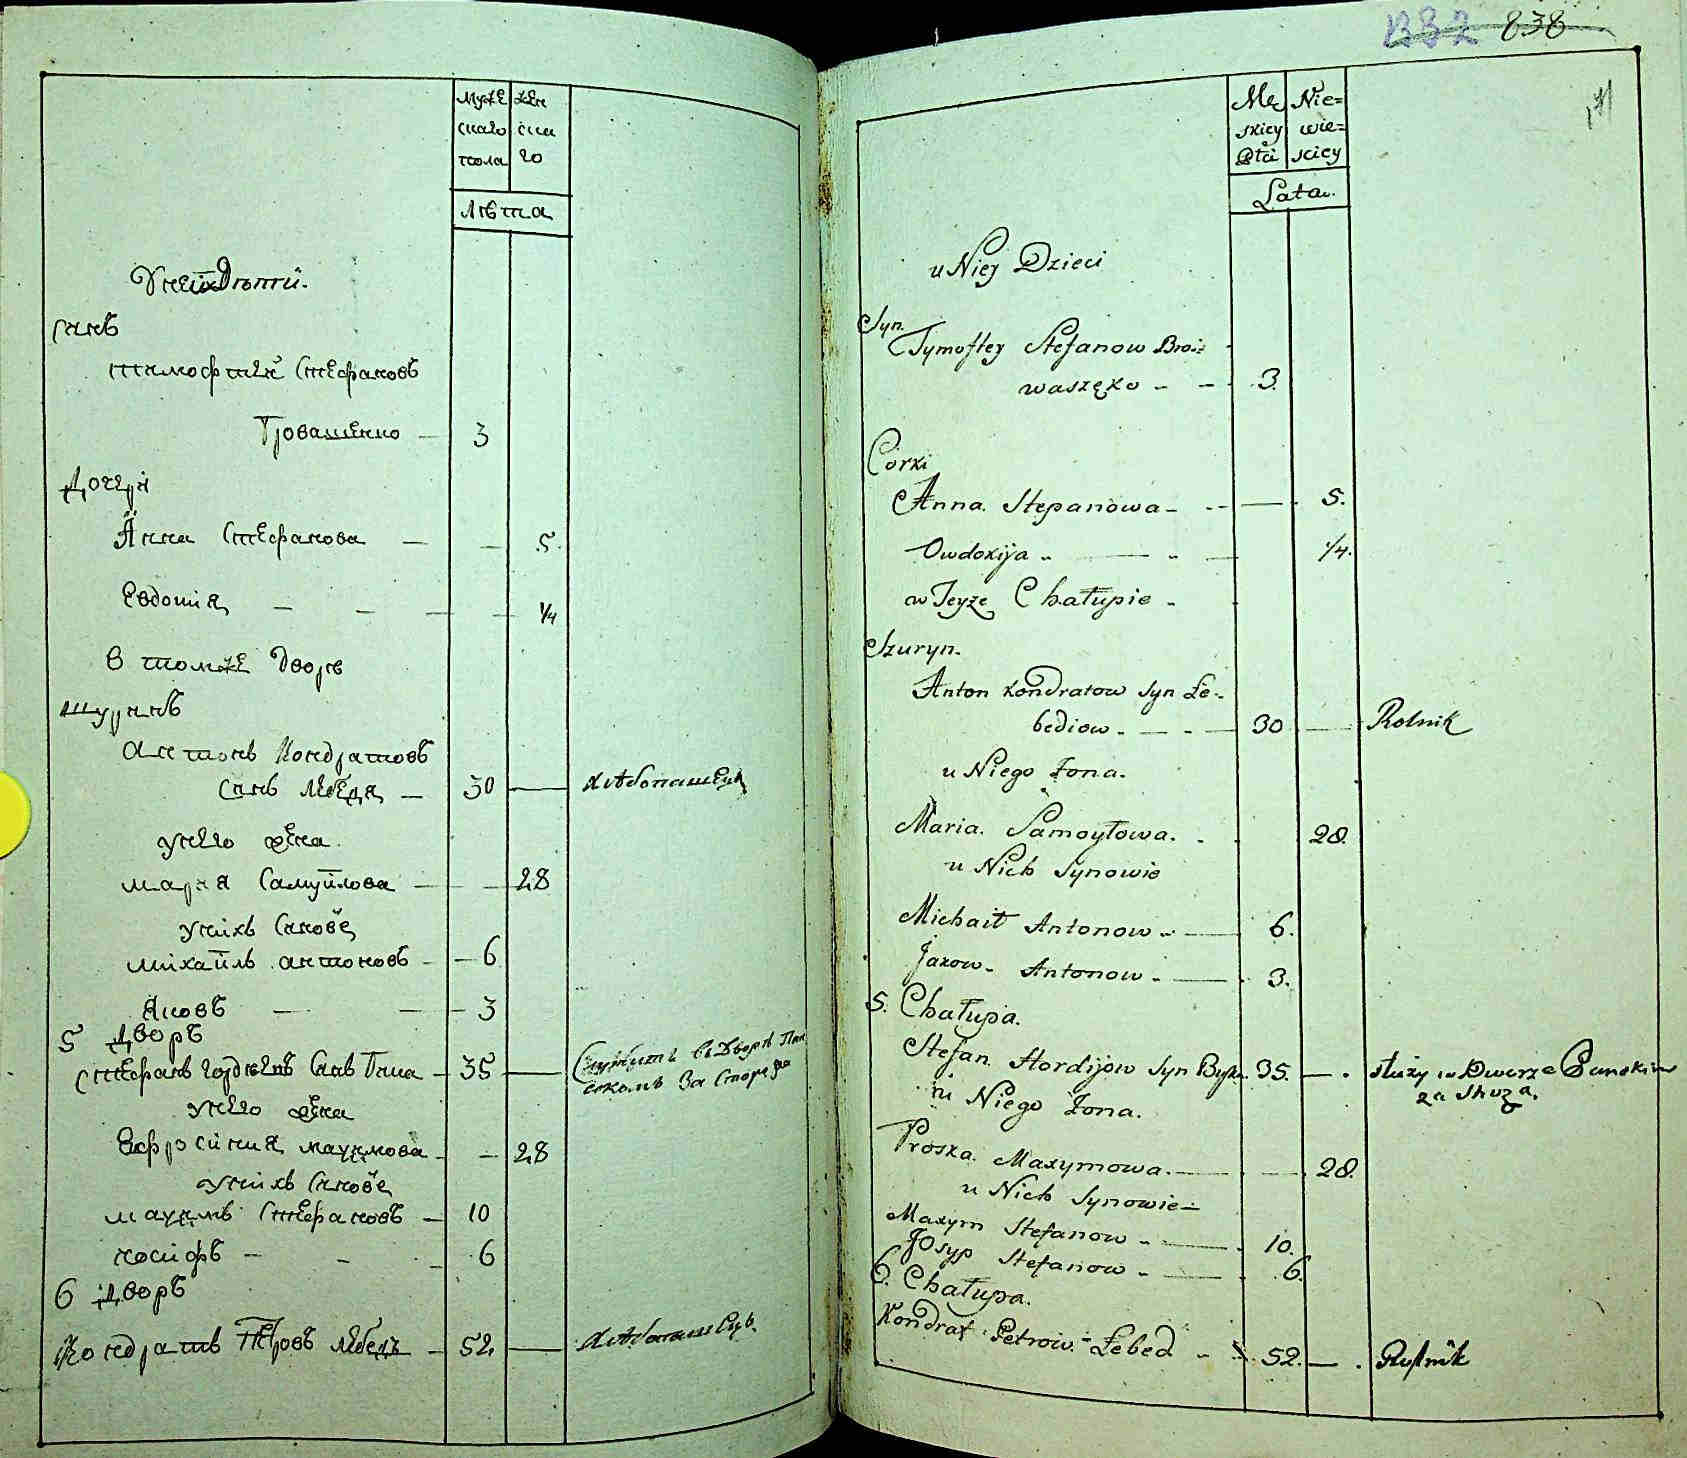 838
Муже Жен
скаго ска
пола го
Лѣта
У неи Дѣти.
Сынъ
Тимофѣй Стефановъ
3
Дочери
Анна Стефанова — — 5.
Евдокия — — — 1/4
В томже дворѣ
Шуринъ
Антонъ Кондратовъ
Сынъ Лебедя — 30 — хлѣбопашецъ
у него жена.
Мария Самуйлова — — 28
у нихъ Сыновѣ
Михайлъ Антоновъ — — 6
Яковъ — — — 3
5 Дворъ
Стефанъ Гордѣевъ Сынъ — 35 — Служитъ въ Дворѣ Пан
скомъ За Сторожа
у него жена
Ефросиния Мацимова — — 28
у нихъ Сыновѣ
Мацимъ Стефановъ — 10
иосифъ — — — 6
6 Дворъ
Кондратъ Петровъ Лебедь — 52 — хлѣбопашецъ
Mę Nie=
skiey wie=
Płci skiey
Lata.
u Niey Dzieci
Syn.
Tymoftey Stefanow Bro=
waszęko - - 3.
Corki
Anna. Stepanowa - - — 5.
Owdokija - — - — 1/4.
w Teyże Chałupie -
Szuryn.
Anton Kondratow Syn Łe-
bediow - — - — 30 — Rolnik
u Niego Żona.
Maria. Samoyłowa. - 28.
u Nich Synowie
Michaił Antonow - — 6.
Jakow - Antonow - — 3.
5. Chałupa.
Stefan Hordijow Syn 35. — służy w Dworze Panskim
za Stroża.
u Niego Żona.
Proska. Maxymowa. — — 28.
u Nich Synowie
Maxym Stefanow - — 10.
Josyp Stefanow - — 6.
6. Chałupa.
Kondrat Petrow - Łebed - 52. — Rolnik